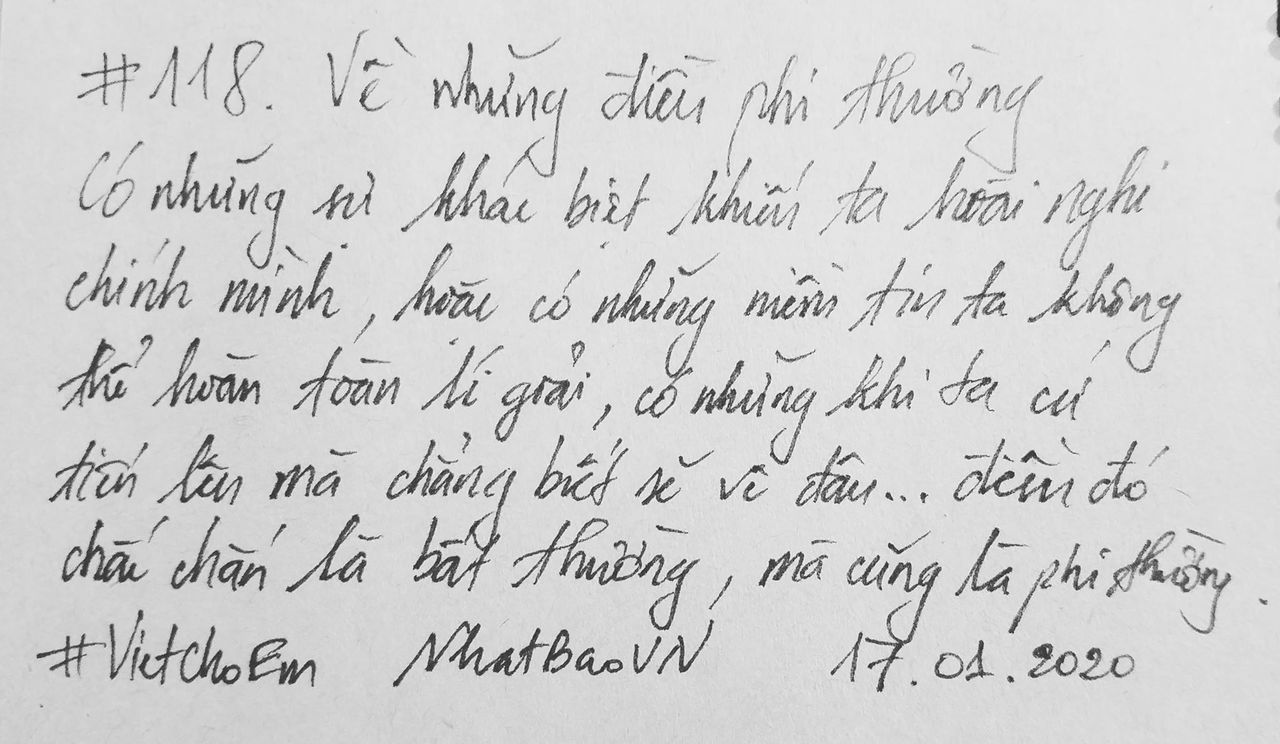 #118. Về những điều phi thường
Có những sự khác biệt khiến ta hoài nghi
chính mình, hoặc có những niềm tin ta không
thể hoàn toàn lí giải, có những khi ta cứ
tiến lên mà chẳng biết sẽ về đâu... điều đó
chắc chắn là bất thường, mà cũng là phi thường.
#VietChoEm NhatBaoVN 17.01.2020